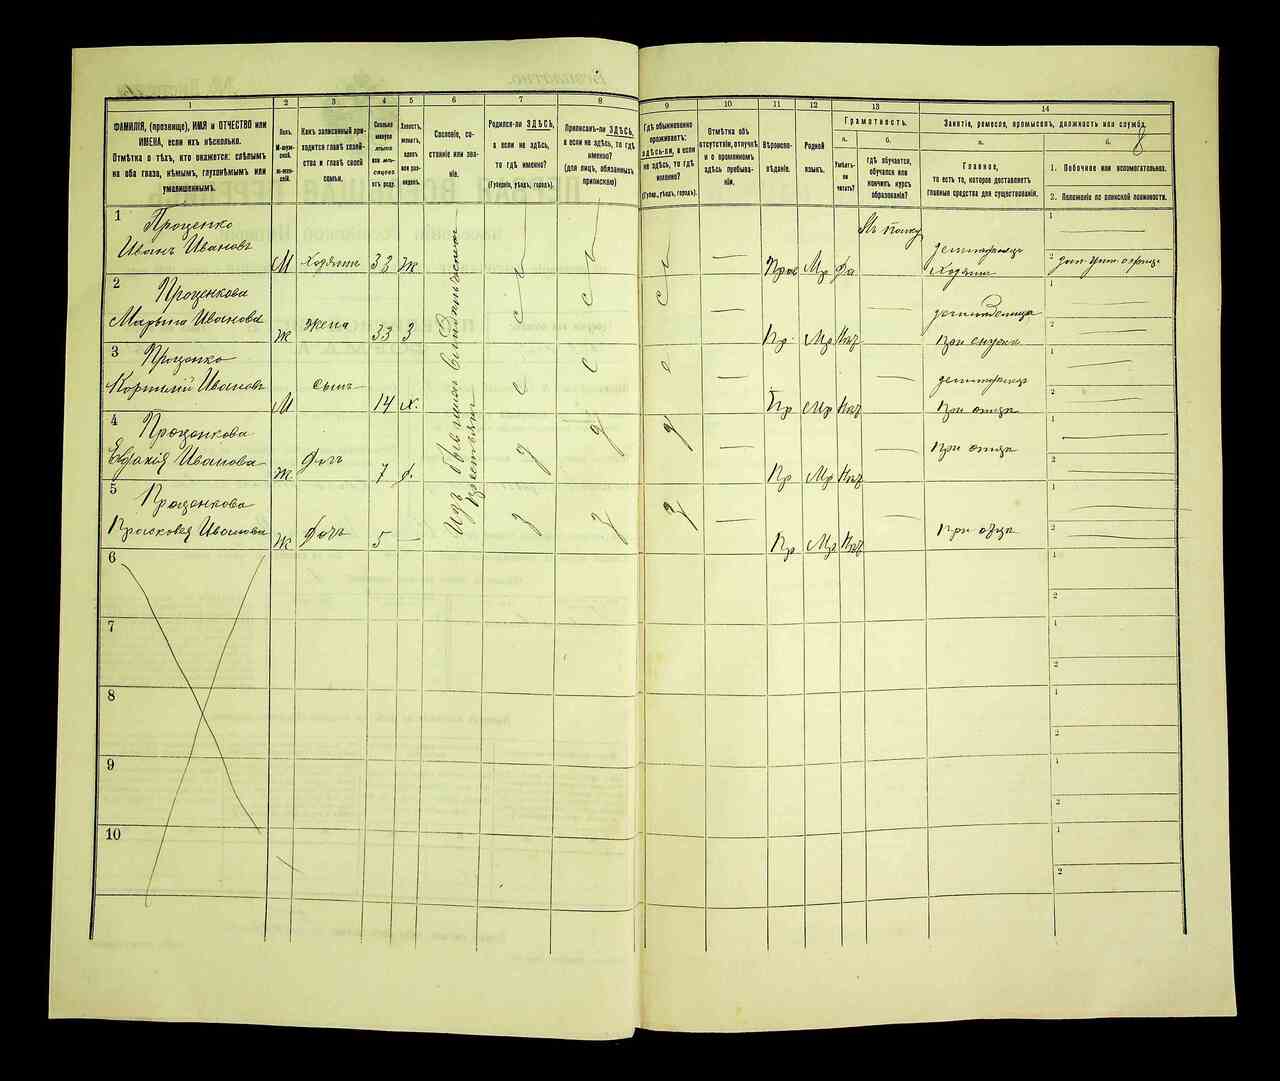 1
2
3
4
5
6
7
8
9
10
11
12
13
14
ФАМИЛІЯ, (прозвище), ИМЯ и ОТЧЕСТВО или
ИМЕНА, если ихъ нѣсколько.
Отмѣтка о тѣхъ, кто окажется: слѣпымъ
на оба глаза, нѣмымъ, глухонѣмымъ или
умалишеннымъ.
Полъ.
М-муж-
ской.
Ж-жен-
скій.
Какъ записанный при-
ходится главѣ хозяй-
ства и главѣ своей
семьи.
Сколько
минуло
лѣтъ
или мѣ-
сяцевъ
отъ роду.
Холостъ,
женатъ,
вдовъ
или раз-
веденъ.
Сословіе, со-
стояніе или зва-
ніе.
Родился-ли ЗДѢСЬ,
а если не здѣсь,
то гдѣ именно?
(Губернія, уѣздъ, городъ).
Приписанъ-ли ЗДѢСЬ,
а если не здѣсь, то гдѣ
именно?
(для лицъ, обязанныхъ
припискою)
Гдѣ обыкновенно
проживаетъ:
здѣсь-ли, а если
не здѣсь, то гдѣ
именно?
(Губер., уѣздъ, городъ).
Отмѣтка объ
отсутствіи, отлучкѣ
и о временномъ
здѣсь пребыва-
ніи.
Вѣроиспо-
вѣданіе.
Родной
языкъ.
Грамотность.
а.
Умѣетъ-
ли
читать?
б.
гдѣ обучается,
обучался или
кончилъ курсъ
образованія?
Занятіе, ремесло, промыселъ, должность или служба.
8
а.
Главное,
то есть то, которое доставляетъ
главныя средства для существованія.
б.
1. Побочное или вспомогательное.
2. Положеніе по воинской повинности.
1
Проценко
Иванъ Ивановъ
М
Хозяинъ
33
Ж
Прав
Мр
Да
Въ полку
Хозяинъ
1
2
2
Проценкова
Марьяна Иванова
Ж
Жена
33
З
с
с
с
Пр.
Мр
Нѣтъ
1
2
3
Проценко
Корнилій Ивановъ
М
Сынъ
14
Х.
с
с
с
Пр
Мр
Нѣтъ
При отцѣ
1
2
4
Проценкова
Евдокія Иванова
Ж
Дочь
7
Д.
Пр
Мр
Нѣтъ
При отцѣ
1
2
5
Проценкова
Прасковья Иванова
Ж
Дочь
5
Пр
Мр
Нѣтъ
При отцѣ
1
2
Изъ
крестьянъ
6
1
2
7
1
2
8
1
2
9
1
2
10
1
2